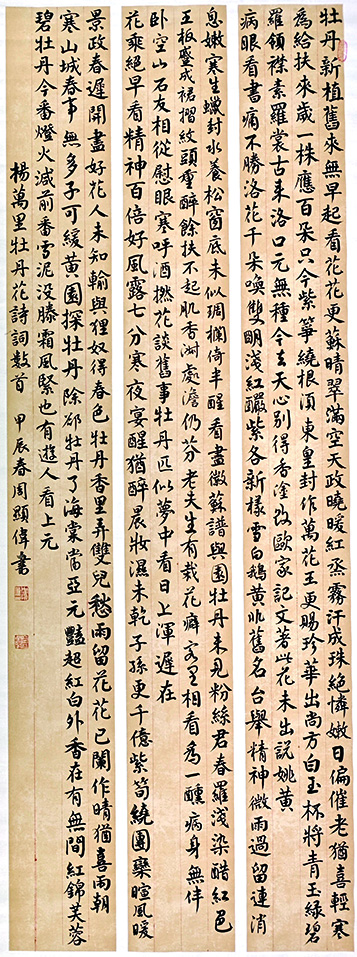 牡丹新植舊來無早起看花花更蘇晴翠滿空政曉暖紅烝霧汗成珠絕憐嫩日偏催老猶喜輕寒
為給扶來歲一株應百朵只今紫笋繞根頂東皇封作萬花王更賜珍華出尚方白玉杯將青玉綠碧
羅領襟素羅裳古來洛口元無種今去天心別得香塗改歐家記文著此花未出說姚黃
病眼看書痛不勝洛花千朵喚雙明淺紅釅紫各新樣雪白鵝黃非舊名台舉精神微雨過留連消
息嫩寒生蠟封水養松窗底未似琱欄倚半醒看盡徽蘇譜與園牡丹未見粉絲君春羅淺染醋紅邑
玉板盛成裙摺紋頭重醉餘扶不起肌香淑處澹仍芬老夫生有栽花癖客里相看為一醺病身無伴
臥空山石友相從慰眼寒呼酒撚花談舊事牡丹匹似夢中看日上渾遲在
花乘絕早看精神百倍好風露七分寒夜宴醒猶醉晨妝濕未乾子孫更千億紫笋繞團欒暄風暖
景政春遲開盡好花人未知輸與狸奴得春色牡丹香里弄雙兒愁雨留花花已闌作晴猶喜兩朝
寒山城春事無多子可緩黃園探牡丹除卻牡丹了海棠當亞元豔超紅白外香在有無間紅錦芙蓉
碧牡丹今番燈火減前番雪泥沒膝霜風緊也有遊人看上元
楊萬里牡丹花詩詞數首 甲辰春周顕偉書